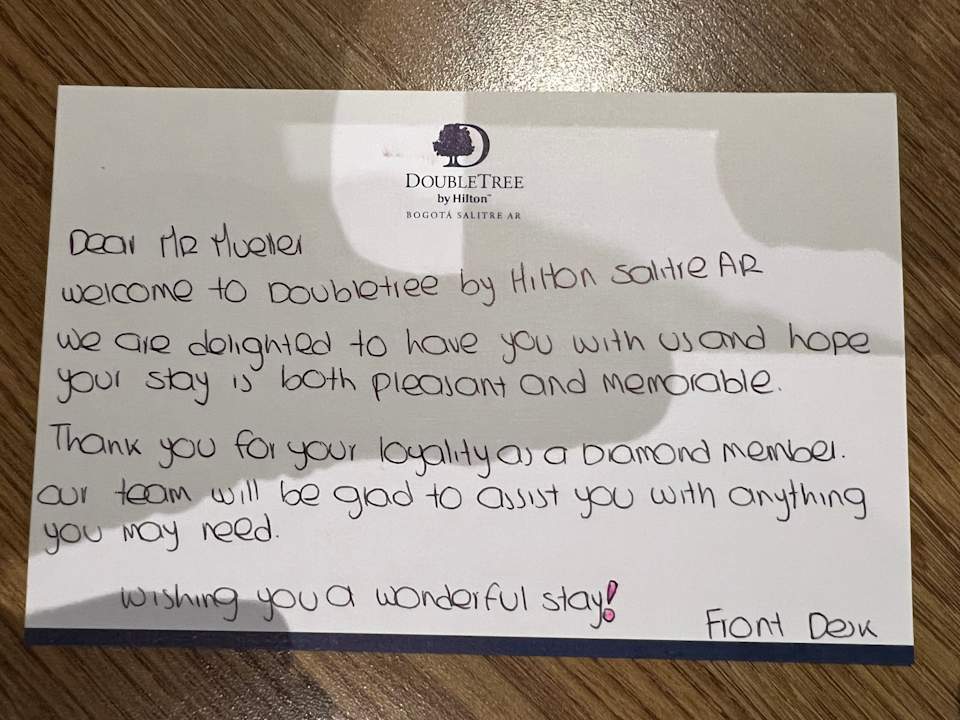 D
DOUBLETREE
by Hilton™
BOGOTÁ SALITRE AR
Dear MR Mueller
welcome to Doubletree by Hilton Salitre AR
we are delighted to have you with us and hope
your stay is both pleasant and memorable.
Thank you for your loyality as a Diamond member.
our team will be glad to assist you with anything
you may need.
wishing you a wonderful stay!
Front Desk